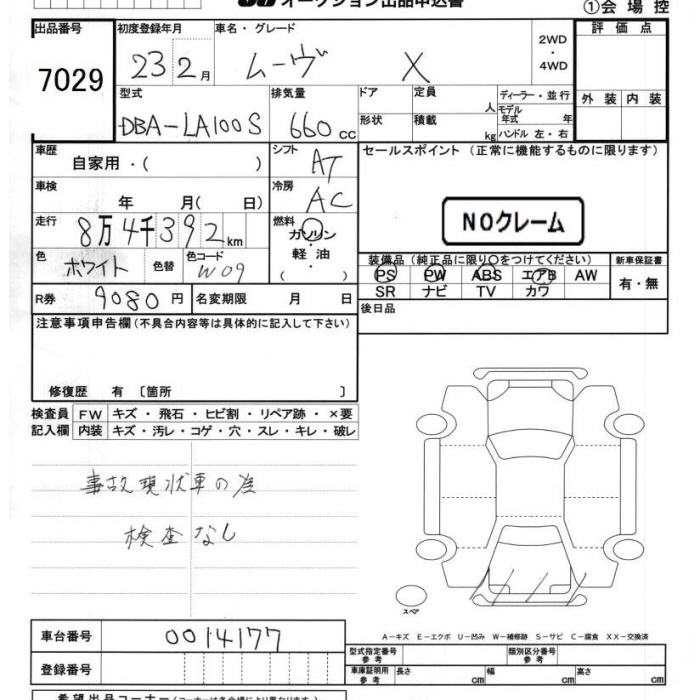 オークション出品申込書
①会場控
出品番号 7029
初度登録年月 23 2月
車名・グレード ムーヴ X
2WD・4WD
評価点
外装 内装
型式 DBA-LA100S
排気量 660cc
ドア 定員 人
形状 積載 kg
ディーラー・並行
モデル年式 年
ハンドル 左・右
車歴 自家用・( )
シフト AT
セールスポイント (正常に機能するものに限ります)
車検 年 月( 日)
冷房 AC
NOクレーム
走行 8万4千392km
燃料 ガソリン・軽油・( )
色 ホワイト 色替 色コード W09
装備品(純正品に限り○をつけてください)
新車保証書
PS PW ABS エアB AW
SR ナビ TV カワ
有・無
R券 9080円 名変期限 月 日
後日品
注意事項申告欄(不具合内容等は具体的に記入して下さい)
修復歴 有 〔箇所 〕
検査員記入欄
FW キズ・飛石・ヒビ割・リペア跡・×要
内装 キズ・汚レ・コゲ・穴・スレ・キレ・破レ
事故現状車の為
検査なし
スペア
A-キズ E-エクボ U-凹み W-補修跡 S-サビ C-腐食 XX-交換済
車台番号 0014177
型式指定番号 参考 類別区分番号 参考
登録番号
車庫証明用 参考 長さ cm 幅 cm 高さ cm
希望出品コーナー(コーナーは各会場により異なります)